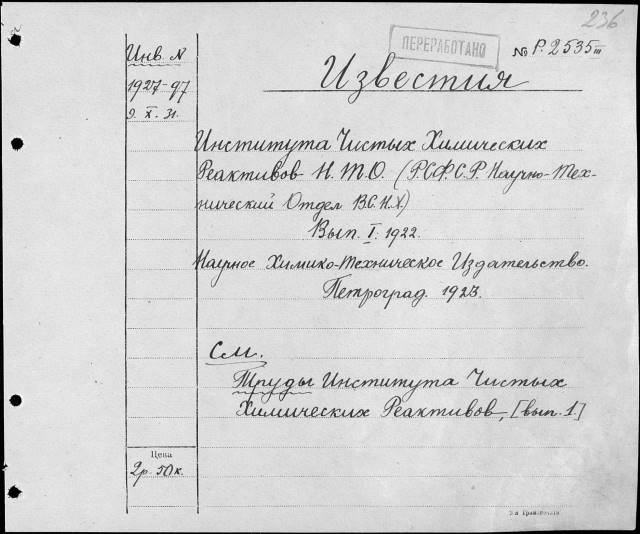 236
ПЕРЕРАБОТАНО
№ Р. 2535 III
Инв. N
1927-97
9. X. 31.
Известия
Института Чистых Химических
Реактивов Н.Т.О. (Р.С.Ф.С.Р. Научно-Тех-
нический Отдел В.С.Н.Х)
Вып. I. 1922.
Научное Химико-Техническое Издательство.
Петроград. 1923.
См.
Труды Института Чистых
Химических Реактивов, [вып. 1.]
Цена
2р. 50к.